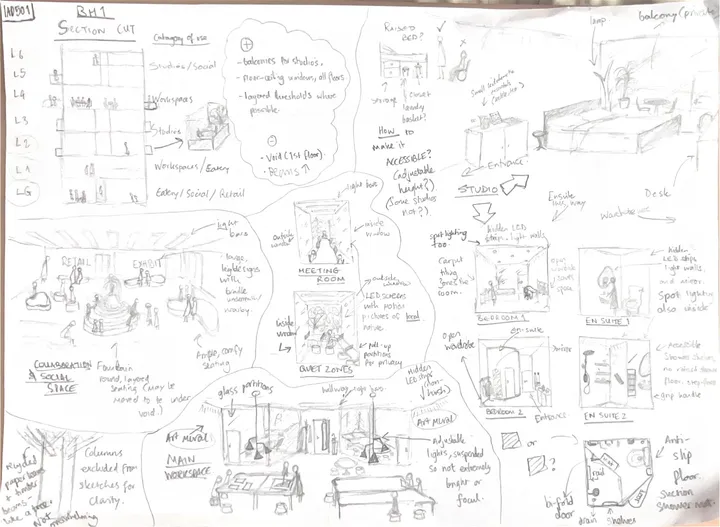 IAD501
BH1
SECTION CUT
Category of use
L6
L5
L4
L3
L2
L1
LG
Studios/Social
Workspaces
Studios
Workspaces/Eatery
Eatery/Social/Retail
+
- balconies for studios.
- floor-ceiling windows, all floors
- layered thresholds where possible
-
- Void (1st floor)
- BEAMS ↑
Raised
BED?
storage
closet
laundry
basket?
HOW to
make it
ACCESSIBLE?
(adjustable
height?)
(Some studios
not?)
lamp
balcony (private)
Small kitchenette
Entrance
STUDIO
Ensuite
Wardrobe
Desk
Light bars
RETAIL
EXHIBIT
large,
legible signs
with
braille
underneath/
nearby.
COLLABORATION
& SOCIAL
SPACE
Fountain
round, layered
seating (may be
moved to be under
void.)
Ample, comfy
seating
light bars
outside
window
inside
window
MEETING
ROOM
outside
window
LED screens
with motion
pictures of local
inside
window
pull-up
partitions
for privacy
QUIET ZONES
spot lighting
too.
hidden LED
strips, light walls
Carpet
tiling
zones the
room.
open
wardrobe
space
BEDROOM 1
EN SUITE 1
hidden
LED strips
light walls,
and mirror.
Spot lights
also inside
open
wardrobe
en-suite
mirror
BEDROOM 2
Entrance
EN SUITE 2
Accessible
grip handle
glass partitions
hallway
hidden
LED strips
Art Mural
Art Mural
MAIN
WORKSPACE
Adjustable
lights, suspended
so not extremely
bright or
focal.
Recycled
paper
Columns
excluded from
sketches for
clarity.
or
?
bi-fold
door
drain
shelves
Anti-
slip
floor.
suction